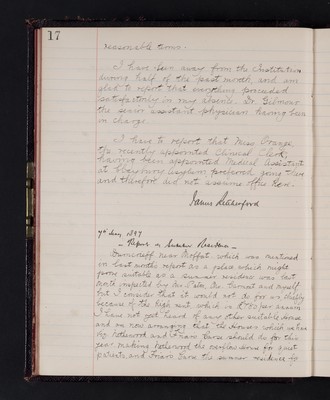 17
reasonable terms.
I have been away from the Institution
during half of the past month and am
glad to report that everything proceeded
satisfactorily in my absence. Dr. Gilmour
the senior assistant physician having been
in charge.
I have to report that Miss Orange,
the recently appointed Clinical Clerk,
having been appointed Medical Assistant
at Hanbury asylum preferred going there
and therefore did not assume office here.
James Rutherford
7th May 1897
Report on Summer Residence
Dumcrieff near Moffat which was mentioned
in last months report as a place which might
prove suitable as a summer residence was last
month inspected by Mr. and myself
but I consider that it would not do for us, chiefly
because of the high rent which is £ per annum
I have not yet heard of any other suitable House
and am now arranging that the Houses which we have
by Netherwood and Friars Carse should do for this
year, making Netherwood the convalescent home for
patients and Friars Carse the summer residence for